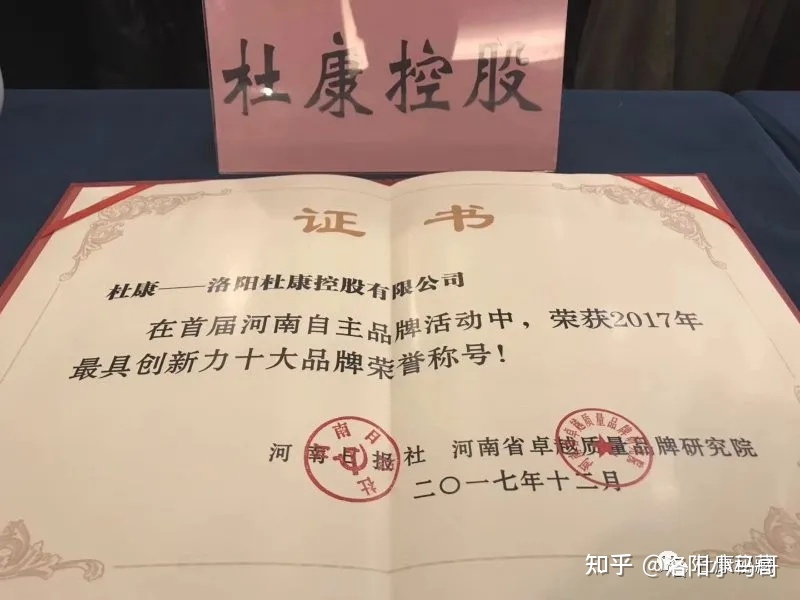 杜康控股
证书
杜康——洛阳杜康控股有限公司
在首届河南自主品牌活动中，荣获2017年
最具创新力十大品牌荣誉称号！
河南日报社 河南省卓越质量品牌研究院
二〇一七年十二月
知乎 @洛阳小马哥